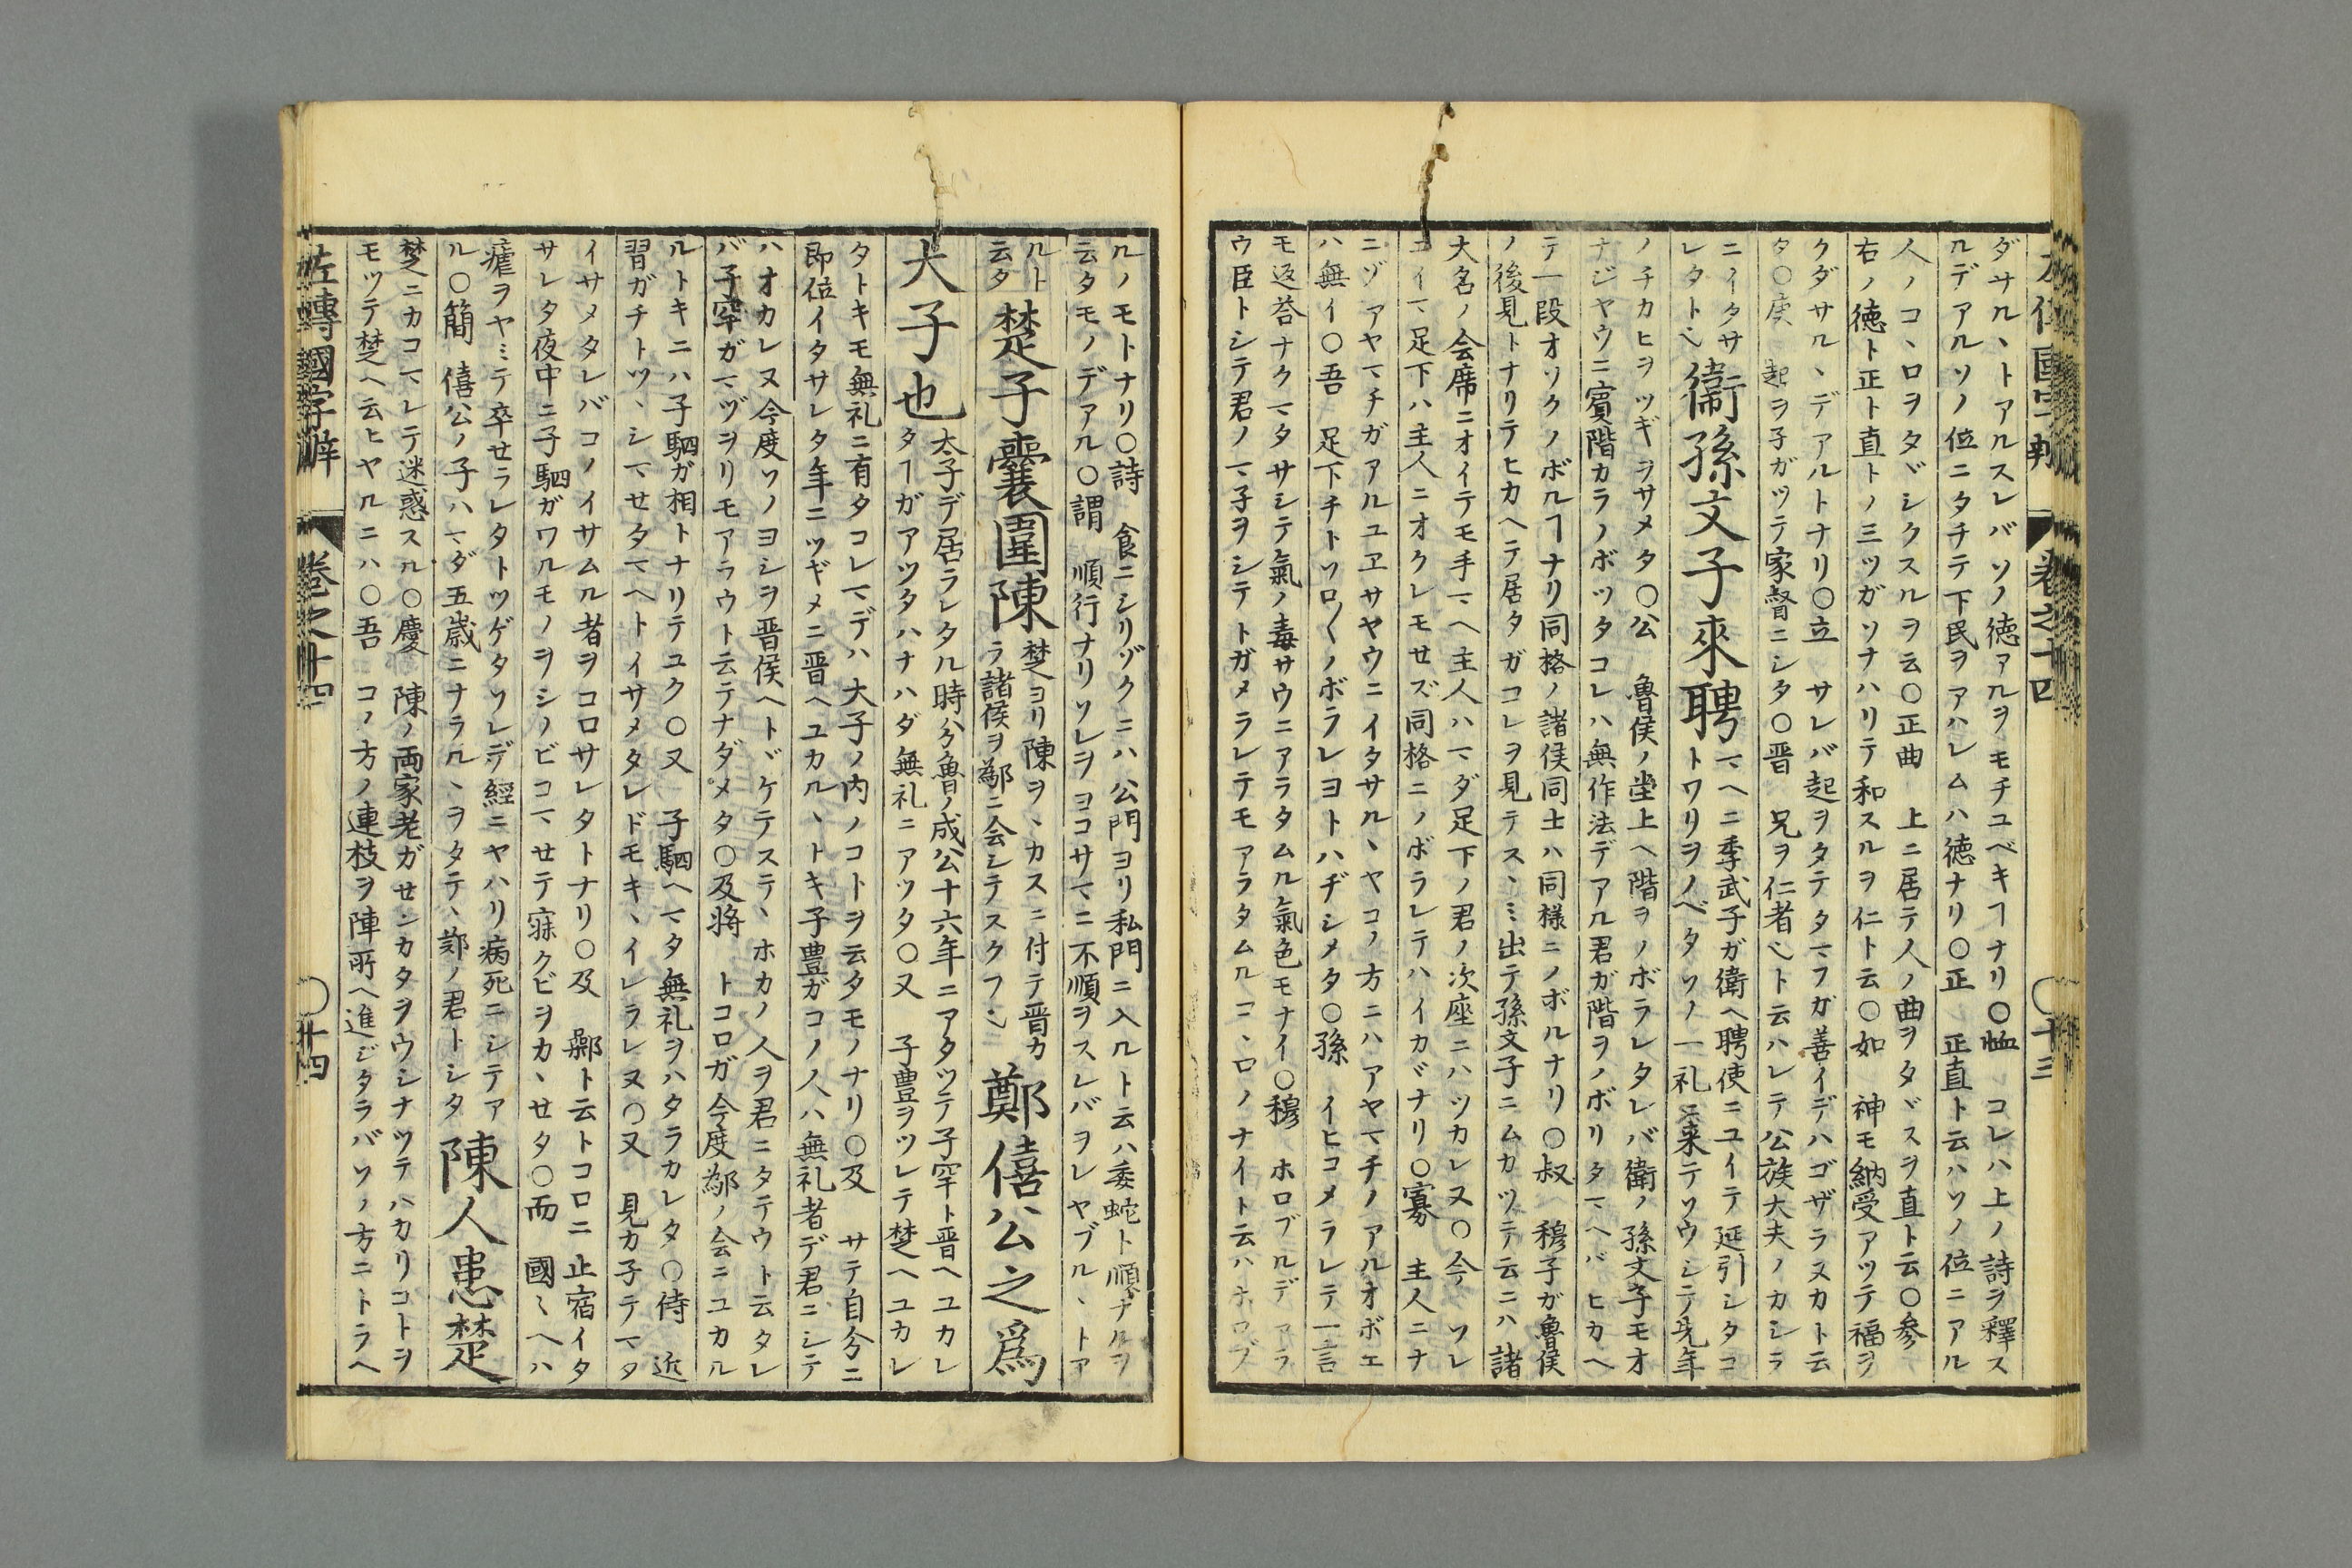 ダサル、トアルスレバソノ徳アルヲモチユベキヿナリ○恤 コレハ上ノ詩ヲ釋ス
ルデアルソノ位ニタチテ下民ヲアハレムハ徳ナリ○正 正直ト云ハソノ位ニアル
人ノコ、ロヲタヾシクスルヲ云○正曲 上ニ居テ人ノ曲ヲタヾスヲ直ト云○参
右ノ徳ト正ト直トノ三ツガソナハリテ和スルヲ仁ト云○如 神モ納受アツテ福ヲ
クダサル、デアルトナリ○立 サレバ起ヲタテタマフガ善イデハゴザラヌカト云
タ○庚 起ヲ子ガツテ家督ニシタ○晋 兄ヲ仁者ヘト云ハレテ公族大夫ノカシラ
ニイタサ
レタト
衞孫文子來聘
マヘニ季武子ガ衛ヘ聘使ニユイテ延引シタコ
トワリヲノベタソノ一礼ニ来テソウシテ先年
ノチカヒヲツギヲサメタ○公 魯侯ノ堂上ヘ階ヲノボラレタレバ衛ノ孫文子モオ
ナジヤウニ賓階カラノボツタコレハ無作法デアル君ガ階ヲノボリタマヘバヒカヘ
テ一段オソクノボルヿナリ同格ノ諸侯同士ハ同様ニノボルナリ○叔 穆子ガ魯侯
ノ後見トナリテヒカヘテ居タガコレヲ見テス、ミ出テ孫文子ニムカツテ云ニハ諸
大名ノ会席ニオイテモ手マヘ主人ハマダ足下ノ君ノ次座ニハツカレヌ○今 ソレ
ニイマ足下ハ主人ニオクレモセズ同格ニノボラレテハイカヾナリ○寡 主人ニナ
ニゾアヤマチガアルユヱサヤウニイタサル、ヤコノ方ニハアヤマチノアルオボエ
ハ無イ○吾 足下チトソロ〱ノボラレヨトハヂシメタ○孫 イヒコメラレテ一言
モ返荅ナクマタサシテ氣ノ毒サウニアラタムル氣色モナイ○穆 ホロブルデアラ
ウ臣トシテ君ノマ子ヲシテトガメラレテモアラタムルコ、ロノナイト云ハホロブ
卷之十四
○十三
ルノモトナリ○詩 食ニシリゾクニハ公門ヨリ私門ニ入ルト云ハ委蛇ト順ナルヲ
云タモノデアル○謂 順行ナリソレヲヨコサマニ不順ヲスレバヲレヤブル、トア
ルト
云タ
楚子囊圍陳
楚ヨリ陳ヲ、カスニ付テ晋カ
ラ諸侯ヲ鄬ニ会シテスクフ
鄭僖公之爲
大子也
太子デ居ラレタル時分魯ノ成公十六年ニアタツテ子罕ト晋ヘユカレ
タヿガアツタハナハダ無礼ニアツタ○又 子豊ヲツレテ楚ヘユカレ
タトキモ無礼ニ有タコレマデハ大子ノ内ノコトヲ云タモノナリ○及 サテ自分ニ
即位イタサレタ年ニツギメニ晋ヘユカル、トキ子豊ガコノ人ハ無礼者デ君ニシテ
ハオカレヌ今度ソノヨシヲ晋侯ヘトヾケテステ、ホカノ人ヲ君ニタテウト云タレ
バ子罕ガマヅヲリモアラウト云テナダメタ○及将 トコロガ今度鄬ノ会ニユカル
ルトキニハ子駟ガ相トナリテユク○又 子駟ヘマタ無礼ヲハタラカレタ○侍 近
習ガチトツ、シマセタマヘトイサメタレドモキ、イレラレヌ○又 見カ子テマタ
イサメタレバコノイサムル者ヲコロサレタトナリ○及 鄵ト云トコロニ止宿イタ
サレタ夜中ニ子駟ガワルモノヲシノビコマせテ寐クビヲカ、せタ○而 國〻ヘハ
瘧ヲヤミテ卒せラレタトツゲタソレデ經ニヤハリ病死ニシテア
ル○簡 僖公ノ子ハマダ五歳ニナラル、ヲタテ、鄭ノ君トシタ
陳人患楚
楚ニカコマレテ迷惑スル○慶 陳ノ両家老ガせンカタヲウシナツテハカリコトヲ
モツテ楚ヘ云ヒヤルニハ○吾 コノ方ノ連枝ヲ陣所ヘ進ジタラバソノ方ニトラヘ
左傳國字觧
卷之十四
○廿四